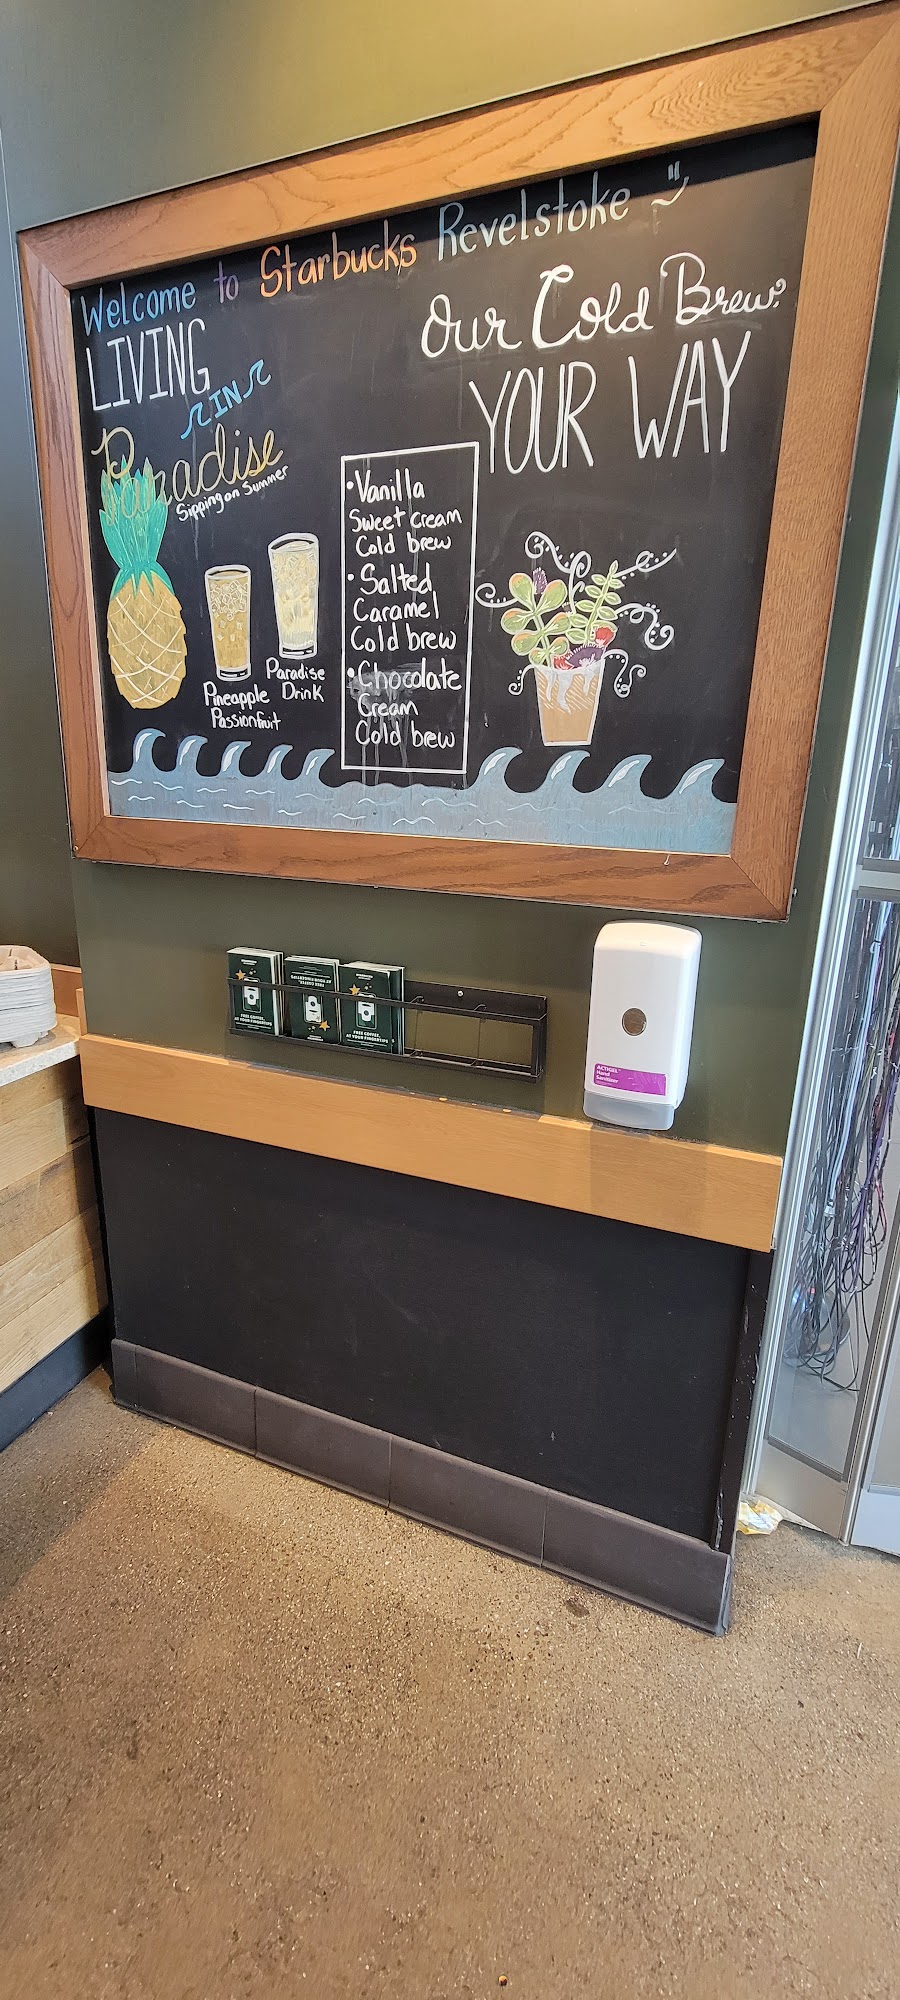 Welcome to Starbucks Revelstoke
LIVING
IN
Paradise
Sipping on Summer
Pineapple
Passionfruit
Paradise
Drink
• Vanilla
Sweet cream
Cold brew
• Salted
Caramel
Cold brew
• Chocolate
Cream
Cold brew
Our Cold Brew?
YOUR WAY
FREE COFFEE,
AT YOUR FINGERTIPS
FREE COFFEE,
AT YOUR FINGERTIPS
FREE COFFEE,
AT YOUR FINGERTIPS
ACTIGEL
Hand
Sanitizer